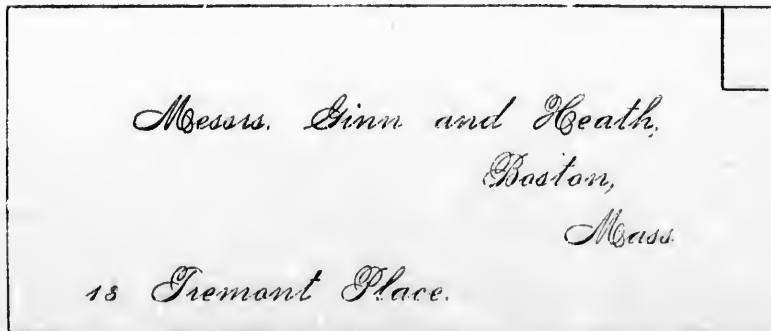 Messrs. Ginn and Heath,
Boston,
Mass.
13 Tremont Place.